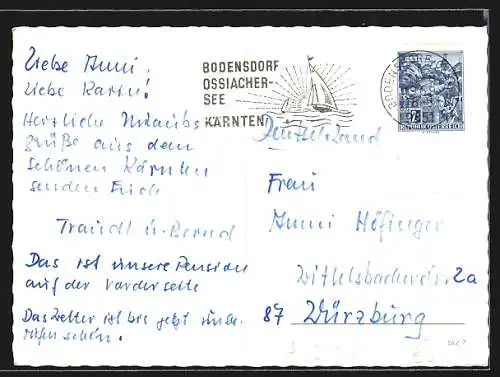 Liebe Anni,
Liebe Karin!
Herzliche Urlaubs
grüße aus dem
schönen Kärnten
senden Euch
Traudl u. Bernd
Das ist unsere Pension
auf der Vorderseite
Das Wetter ist bis jetzt
schön.
BODENSDORF
OSSIACHER-
SEE
KÄRNTEN
BODENS
REPUBLIK ÖSTERREICH
Deutschland
Frau
Anni Höfinger
Wittelsbacherstr. 2a
87 Würzburg